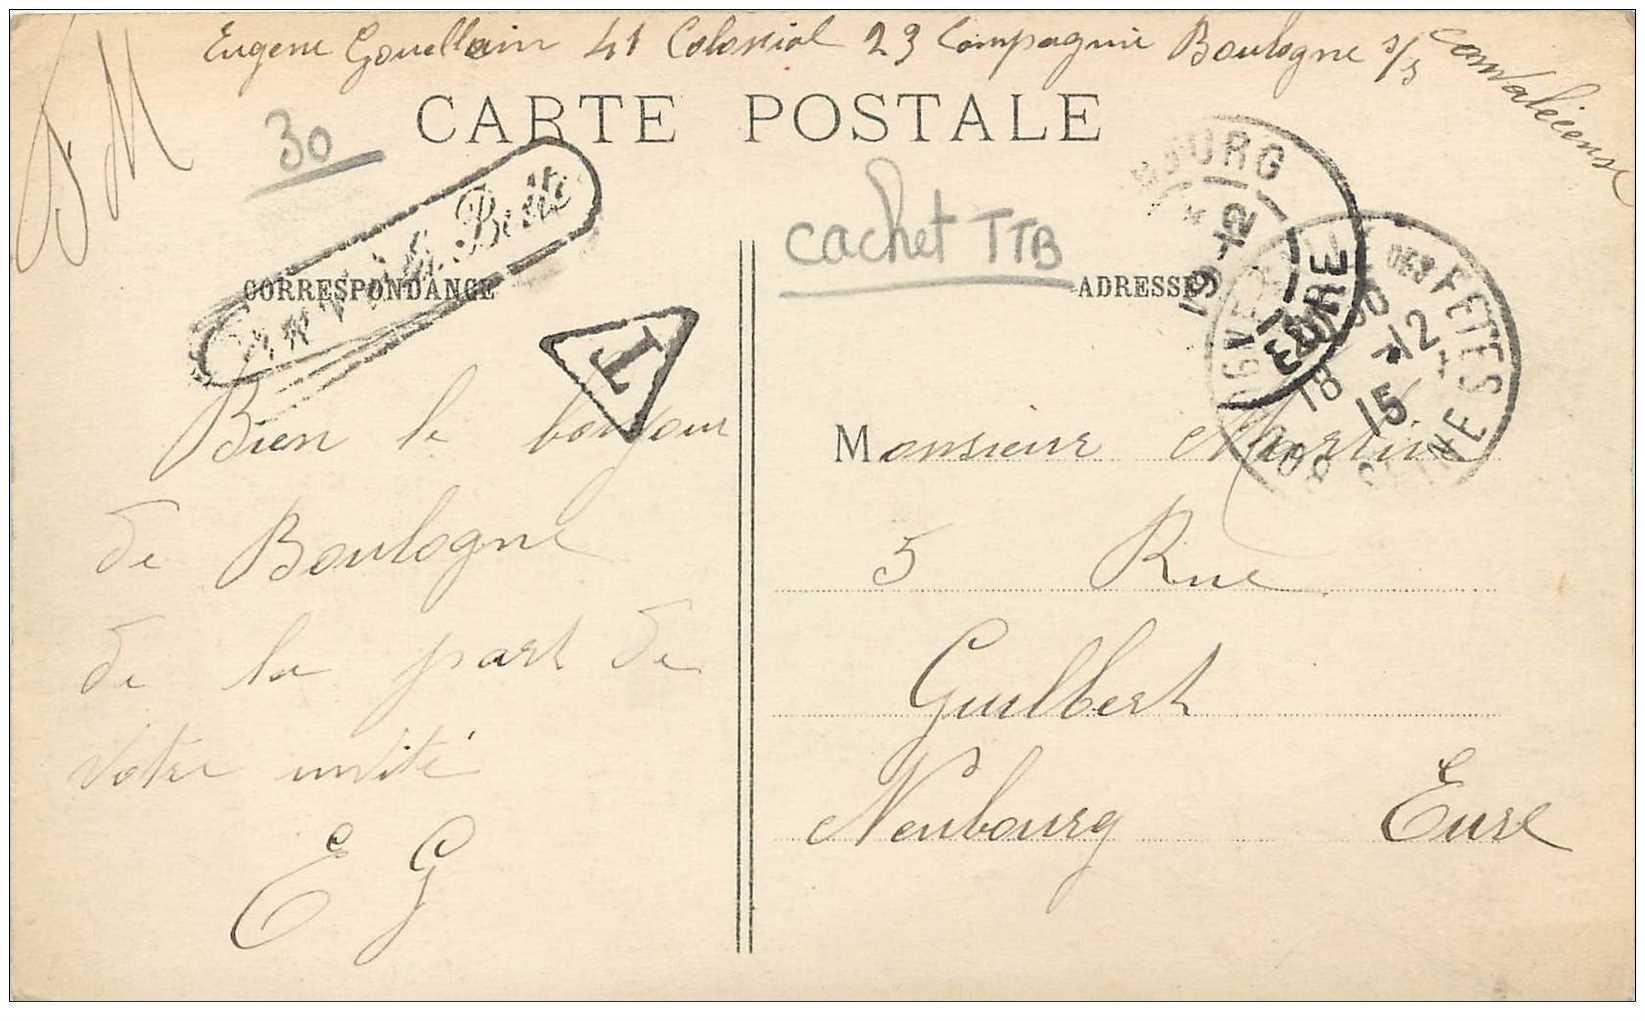 Eugene Gouellain 41 Colonial 23 Compagnie Boulogne s/s convaleiense
F M
CARTE POSTALE
30
Trouvé à la Boîte
cachet TTB
CORRESPONDANCE
ADRESSE
T
BOURG
19 -12
EURE
18 -12
15
SEINE
Bien le bonjour
de Boulogne
de la part de
votre
E G
Monsieur Martin
5 Rue
Guilbert
Neubourg Eure